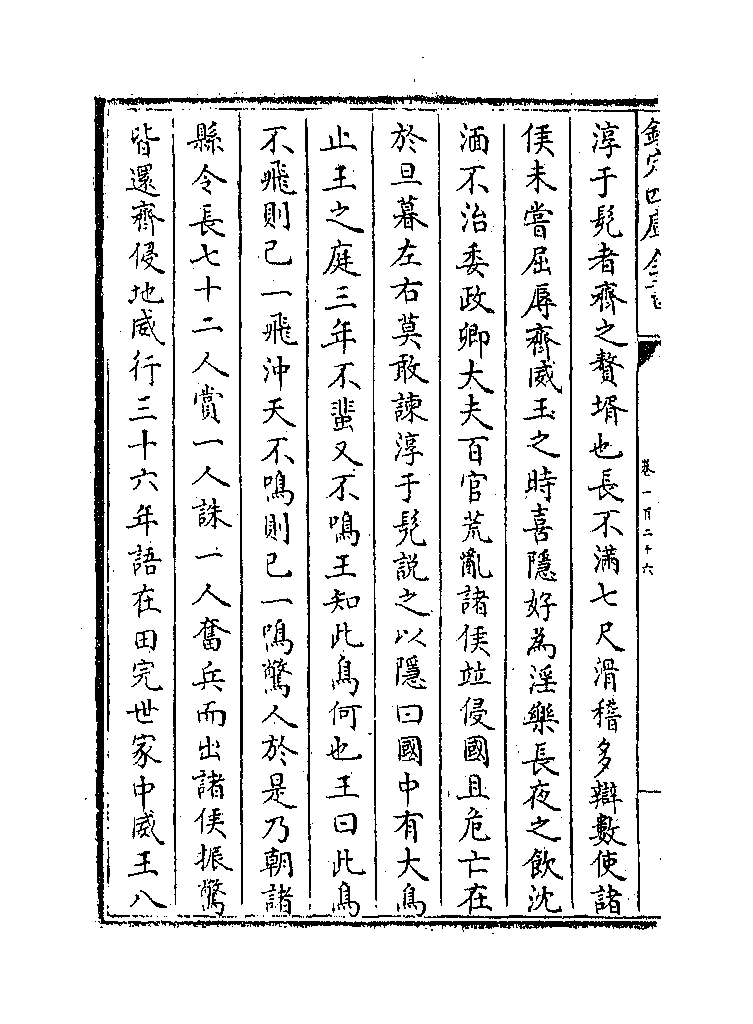 欽定四庫全書
卷一百二十六
淳于髠者齊之贅壻也長不滿七尺滑稽多辯數使諸
侯未嘗屈辱齊威王之時喜隱好為淫樂長夜之飲沈
湎不治委政卿大夫百官荒亂諸侯竝侵國且危亡在
於旦暮左右莫敢諫淳于髠説之以隱曰國中有大鳥
止王之庭三年不蜚又不鳴王知此鳥何也王曰此鳥
不飛則已一飛沖天不鳴則已一鳴驚人於是乃朝諸
縣令長七十二人賞一人誅一人奮兵而出諸侯振驚
皆還齊侵地威行三十六年語在田完世家中威王八